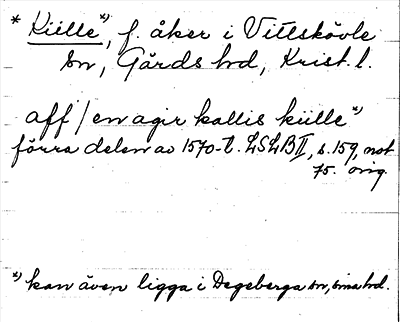 * Kiille*), f. åker i Vittskövle
sn, Gärds hd, Krist. l.
aff / en agir kallis kiille*)
förra delen av 1570-t. LSLB II, s. 159, not
75. orig.
*) kan även ligga i Degeberga sn, sma hd.